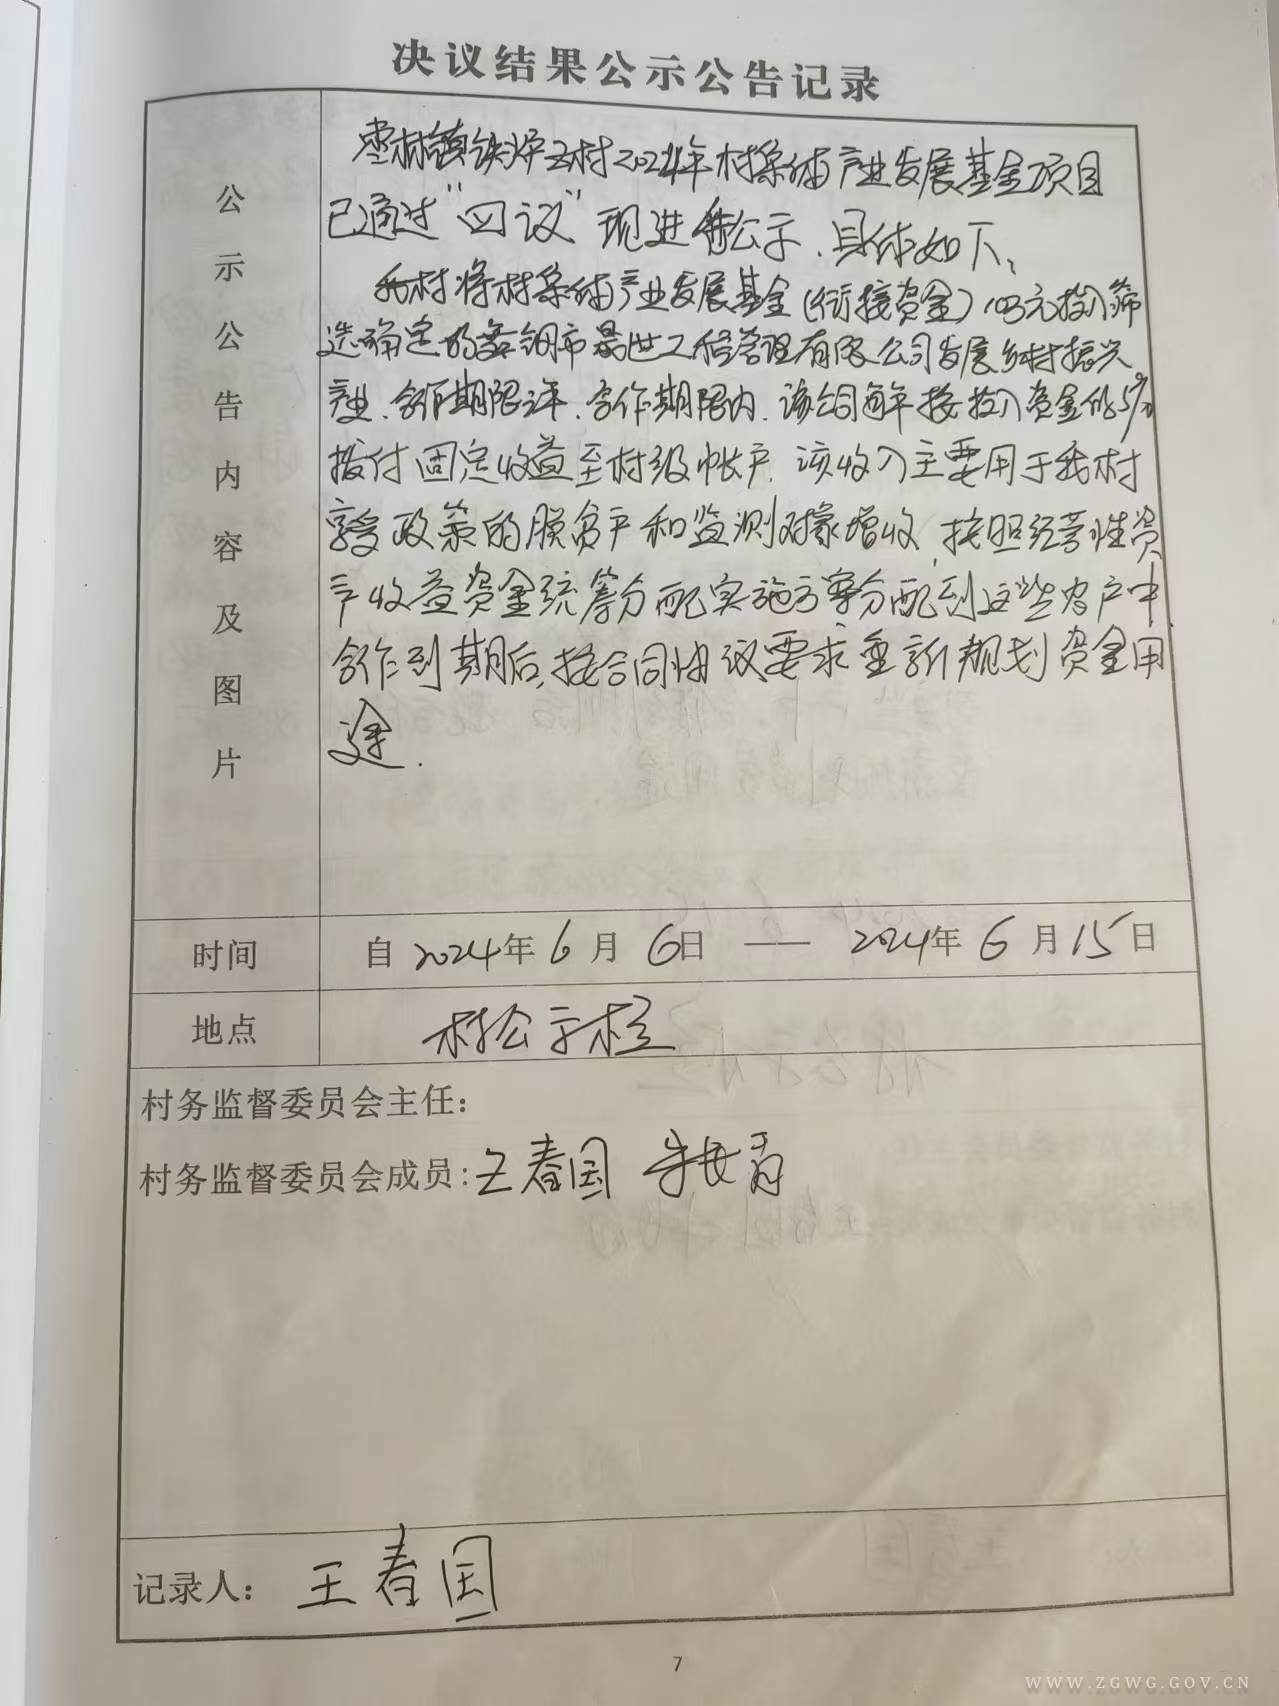 决议结果公示公告记录
公示公告内容及图片
枣林镇铁炉王村2024年村集体产业发展基金项目
已通过“四议”现进行公示.具体如下:
我村将村集体产业发展基金(衔接资金)投入筛
选确定的舞钢市 工程管理有限公司发展乡村振兴
产业.合作期限 年.合作期限内.该公司每年按投入资金的5%
拨付固定收益至村级帐户.该收入主要用于我村
享受政策的脱贫户和监测对象增收,按照经营性资
产收益资金统筹分配实施方案分配到这些农户中
合作到期后,按合同协议要求重新规划资金用
途.
时间 自2024年6月6日 —— 2024年6月15日
地点 村公示栏
村务监督委员会主任:
村务监督委员会成员:王春国 朱
记录人: 王春国
7
WWW.ZGWG.GOV.CN